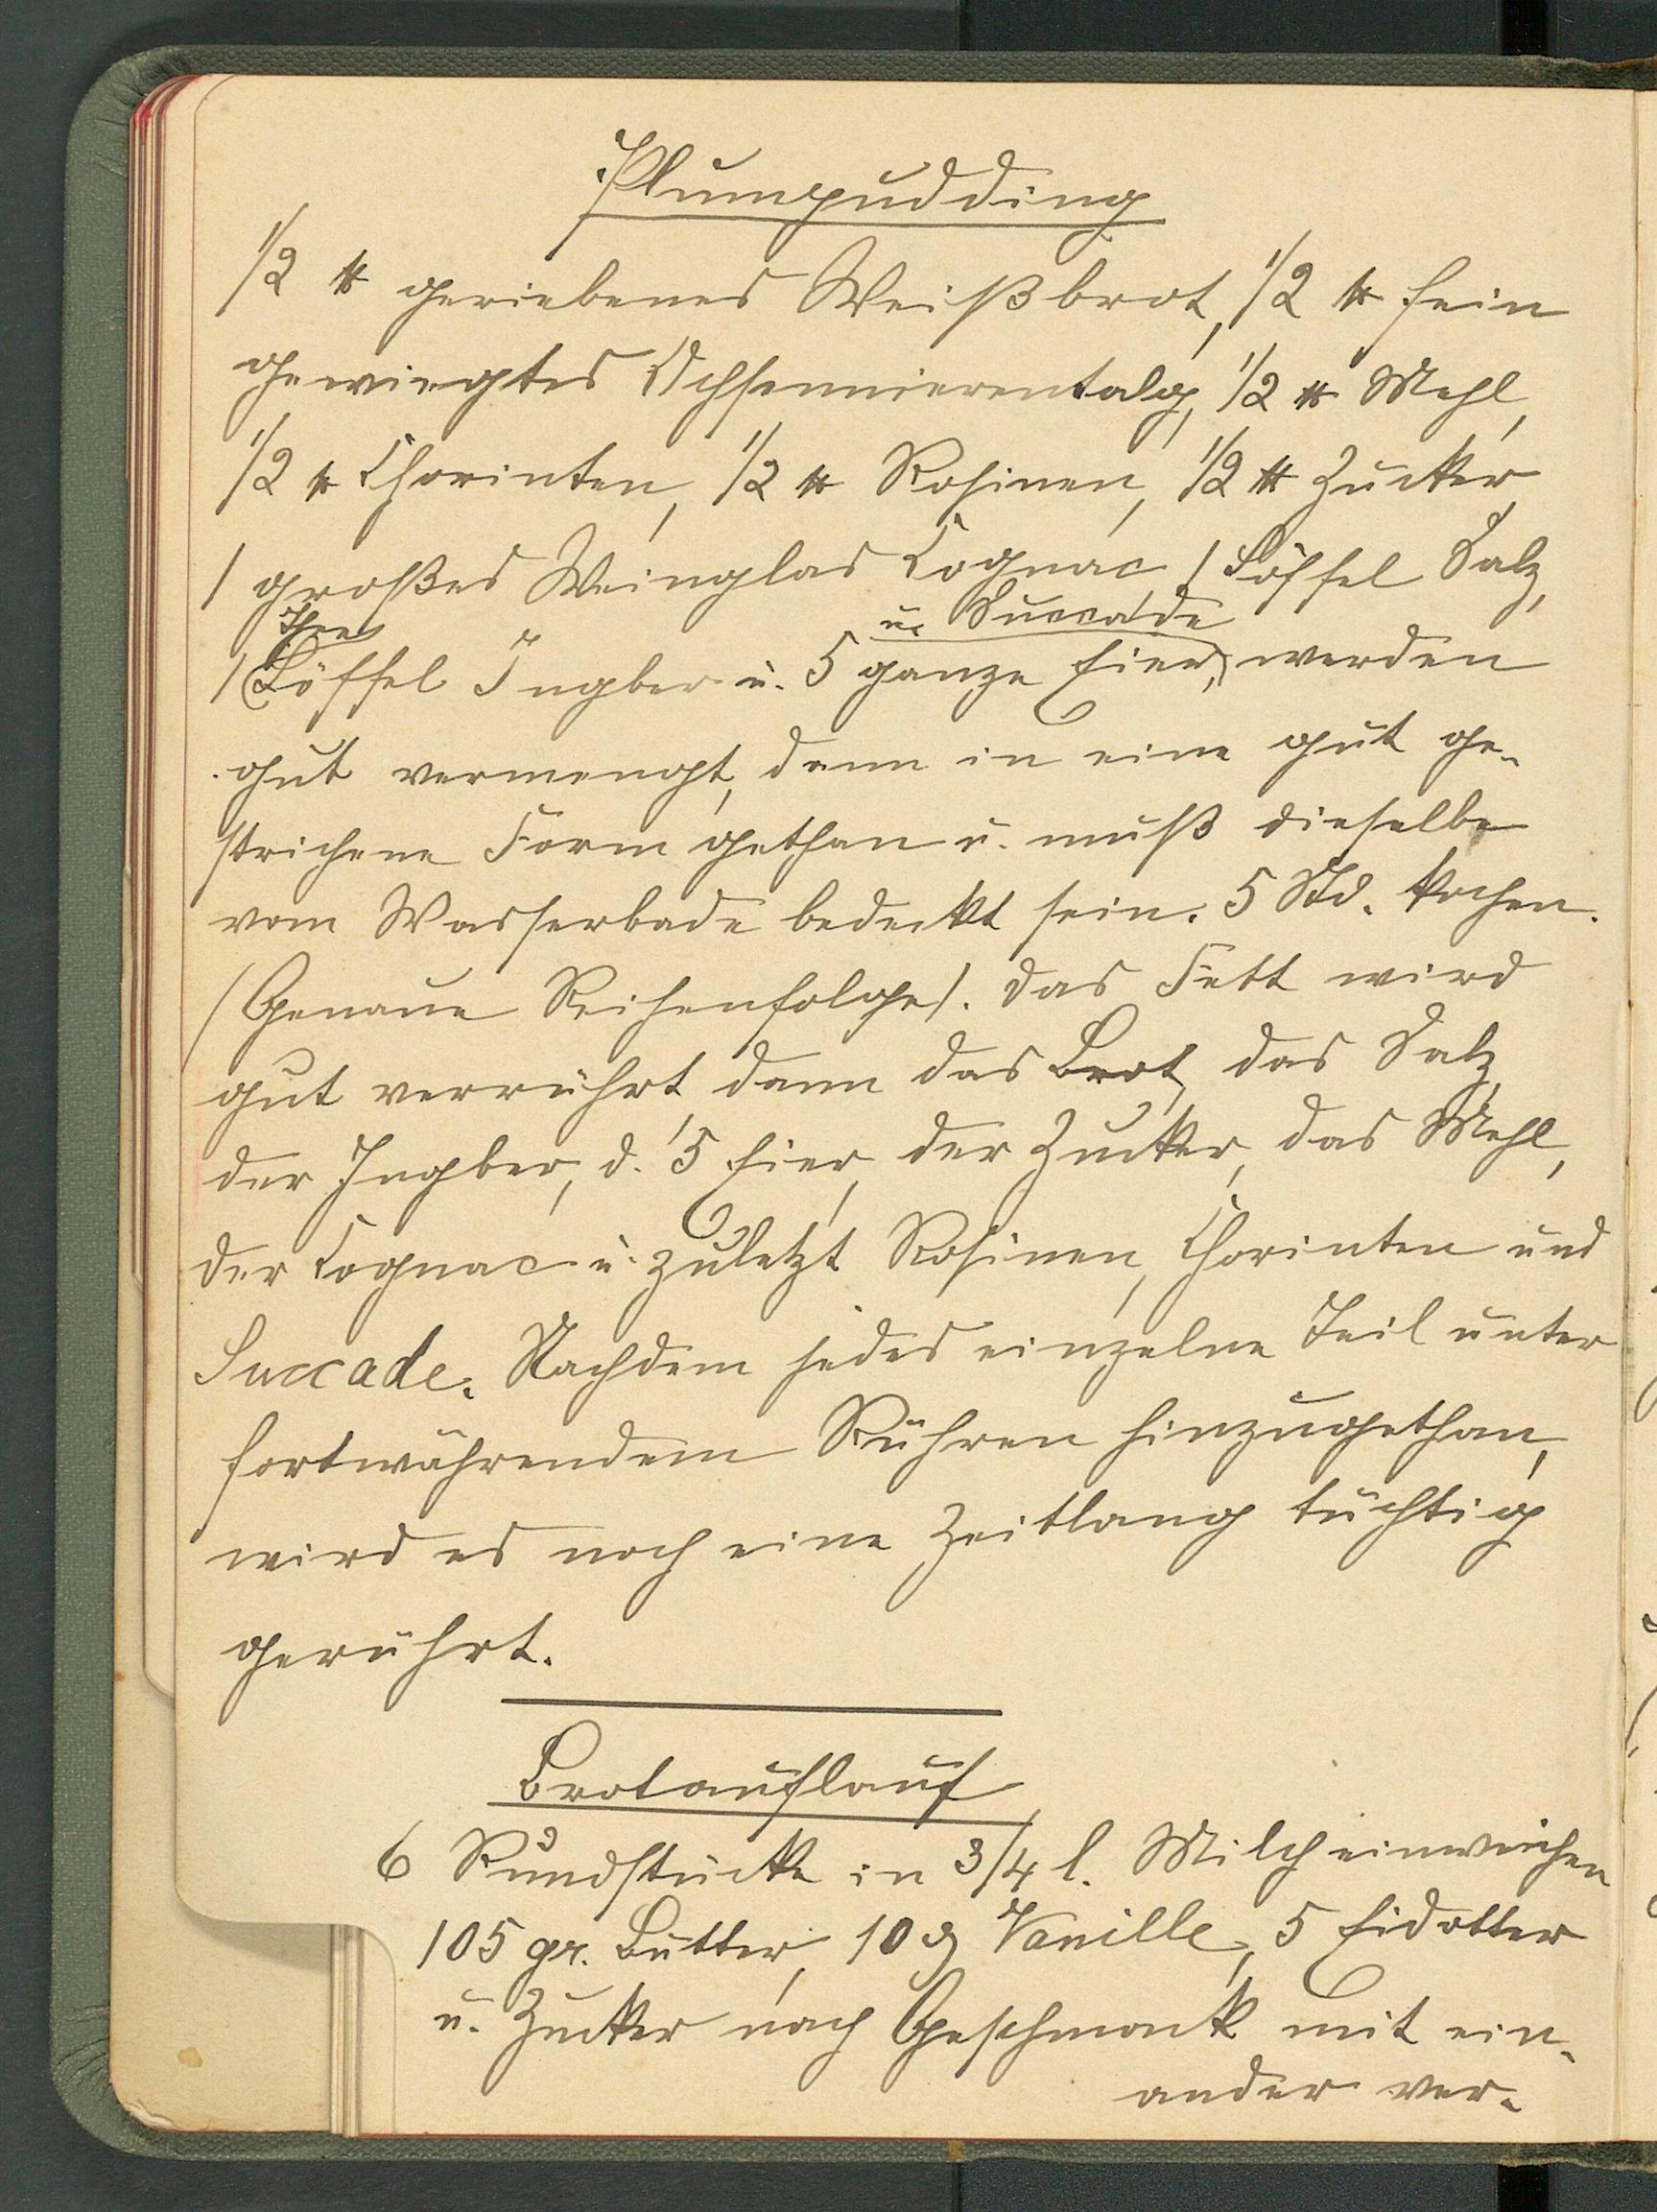 Plumpudding
1/2 ℔ geriebenes Weißbrot, 1/2 ℔ fein
gewiegtes Ochsennierentalg, 1/2 ℔ Mehl,
1/2 ℔ Chorinten, 1/2 ℔ Rosinen, 1/2 ℔ Zucker
1 großes Weinglas Cognac, 1 Löffel Salz,
Thee u. Succade
1 Löffel Ingber u. 5 ganze Eier, werden
gut vermengt, dann in eine gut ge-
strichene Form gethan u. muß dieselbe
vom Wasserbade bedeckt sein. 5 Std. kochen.
(Genaue Reihenfolge). Das Fett wird
gut verrührt dann das Brot, das Salz,
der Ingber, d. 5 Eier, der Zucker, das Mehl,
der Cognac u. zuletzt Rosinen, Chorinten und
Succade. Nachdem jedes einzelne Teil unter
fortwährendem Rühren hinzugethan,
wird es noch eine Zeitlang tüchtig
gerührt.
Brotauflauf
6 Rundstücke in 3/4 l. Milch einweichen
105 gr. Butter, 10 ₰ Vanille, 5 Eidotter
u. Zucker nach Geschmack mit ein-
ander ver-